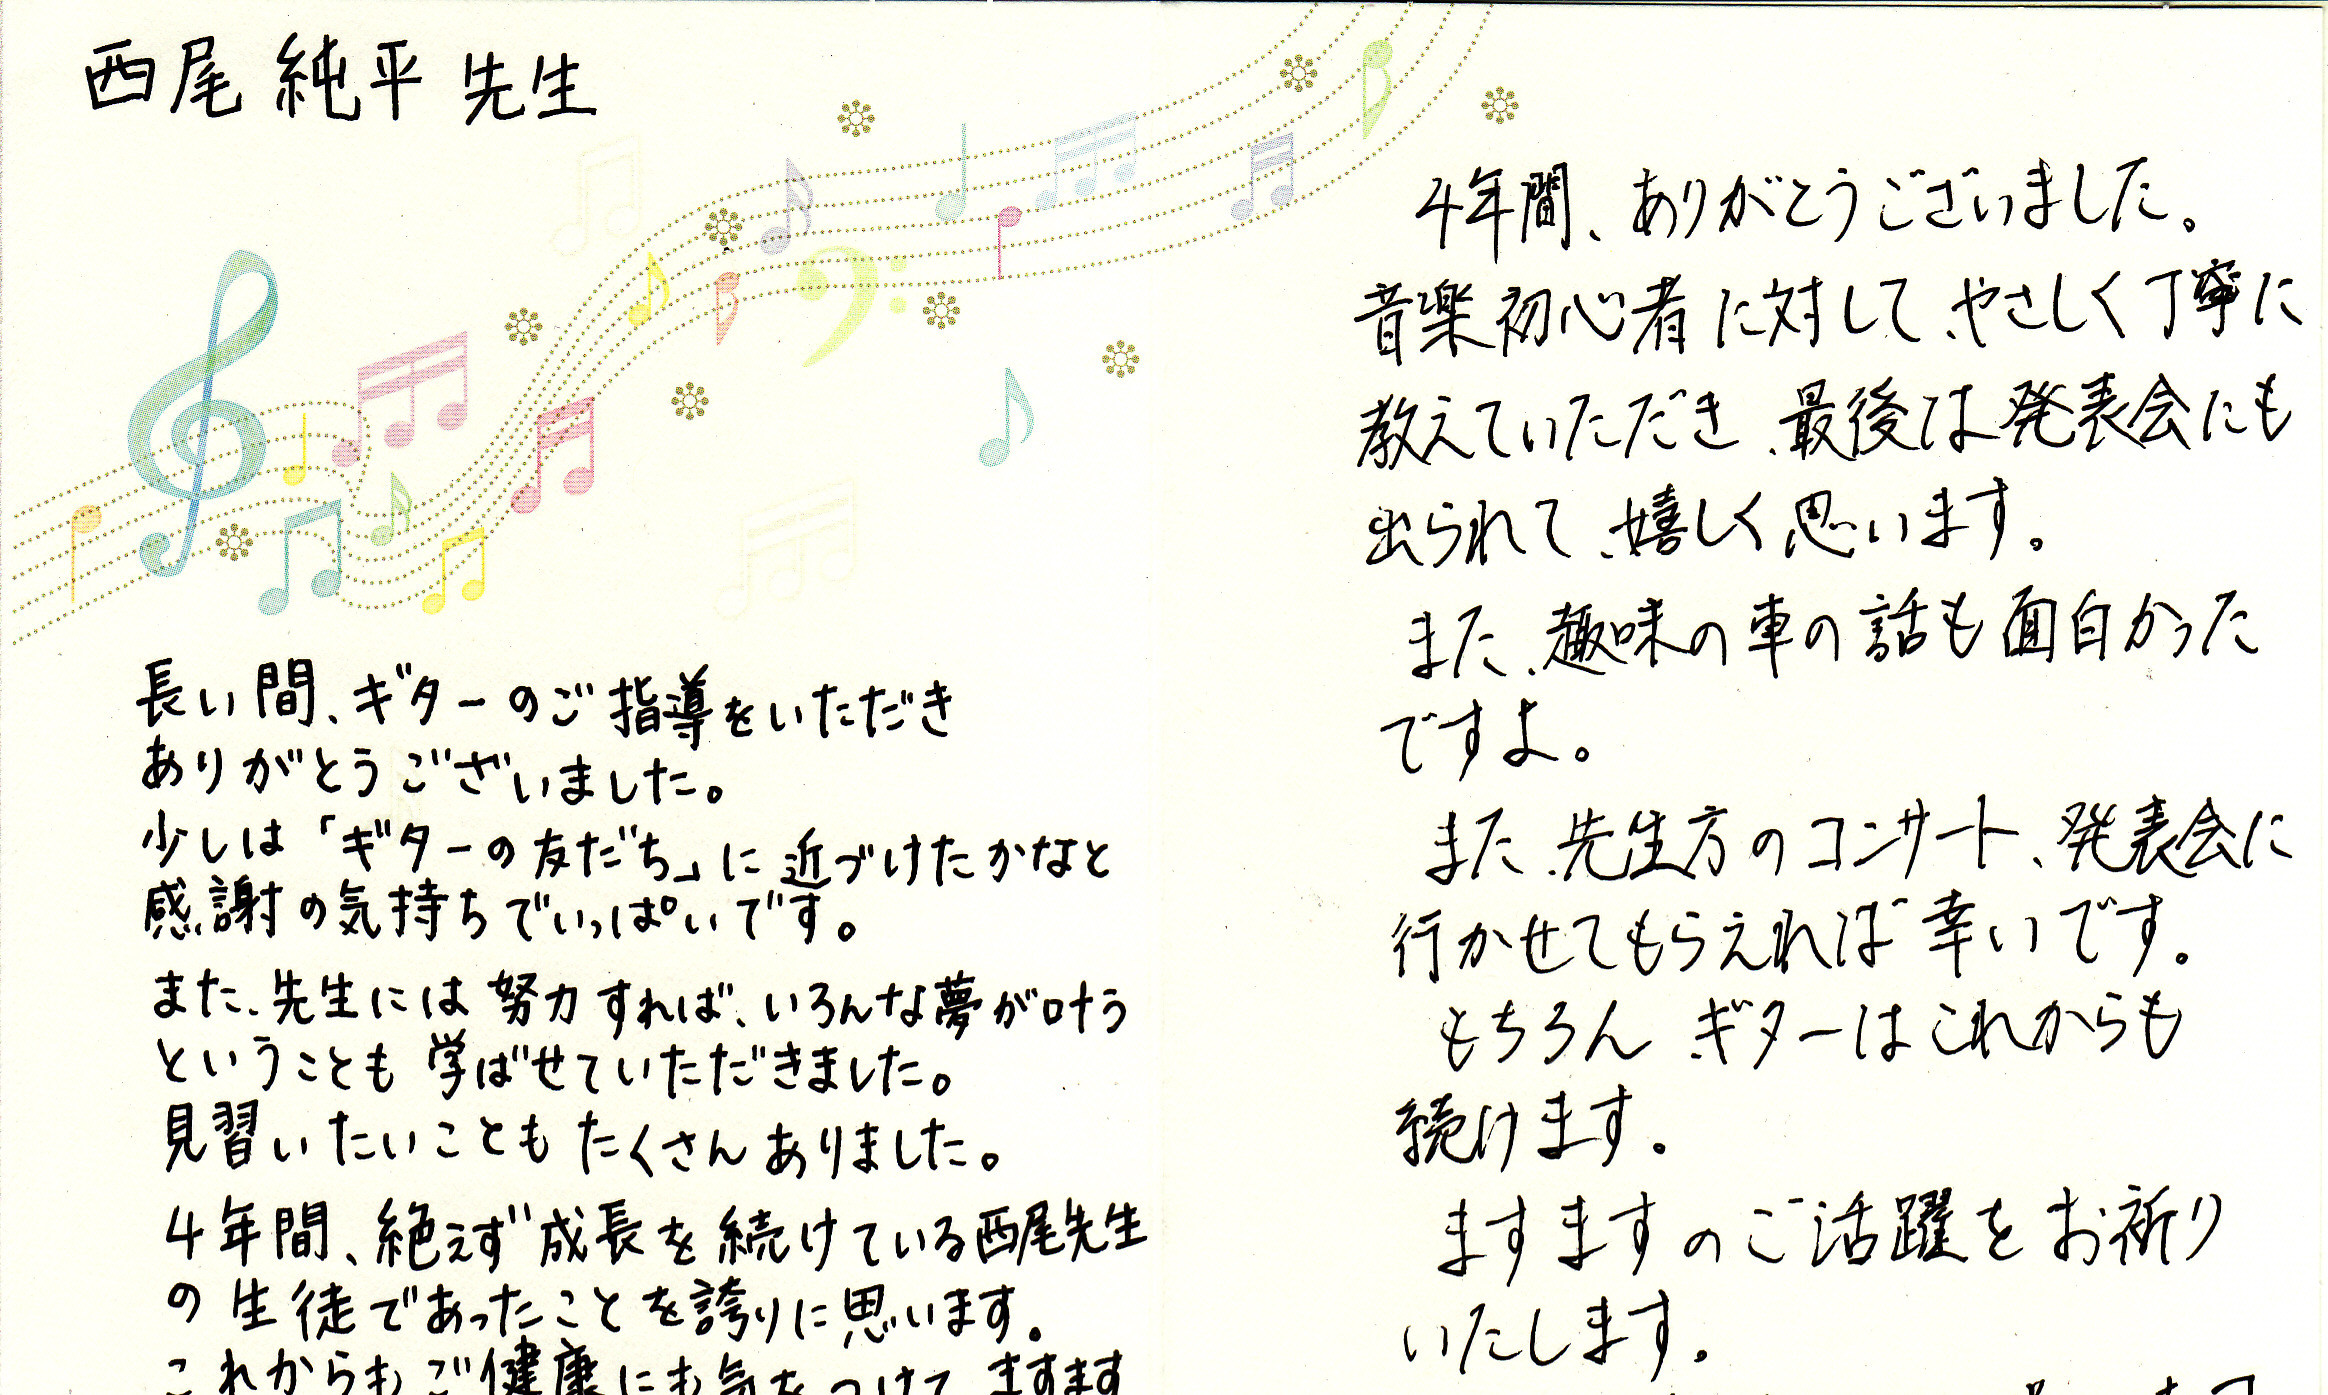 西尾 純平 先生
長い間、ギターのご指導をいただき
ありがとうございました。
少しは「ギターの友だち」に近づけたかなと
感謝の気持ちでいっぱいです。
また、先生には努力すれば、いろんな夢が叶う
ということも学ばせていただきました。
見習いたいこともたくさんありました。
4年間、絶えず成長を続けている西尾先生
の生徒であったことを誇りに思います。
これからもご健康にも気をつけて、ますます
4年間、ありがとうございました。
音楽初心者に対して、やさしく丁寧に
教えていただき、最後は発表会にも
出られて、嬉しく思います。
また、趣味の車の話も面白かった
ですよ。
また、先生方のコンサート、発表会に
行かせてもらえれば幸いです。
もちろん ギターはこれからも
続けます。
ますますのご活躍をお祈り
いたします。